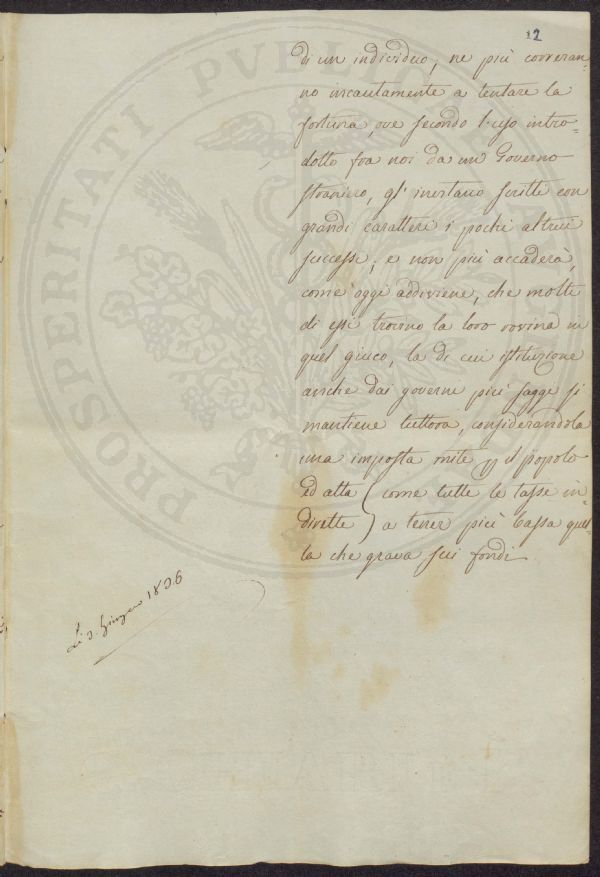 12
di un individuo, ne più correran-
no incautamente a tentare la
fortuna, ove secondo l'uso intro-
dotto fra noi da un Governo
straniero, gl'invitano scritti con
grandi caratteri i pochi altrui
successi; e non più accaderà,
come oggi addiviene, che molti
di essi trovino la loro rovina in
quel giuco, la di cui istituzione
anche dai governi più saggi si
mantiene tuttora, considerandola
una imposta mite pp il popolo
ed atta (come tutte le tasse in-
dirette) a tener più bassa quel-
la che grava sui fondi.
Li 3. Giugno 1836
PROSPERITATI PUBLICAE